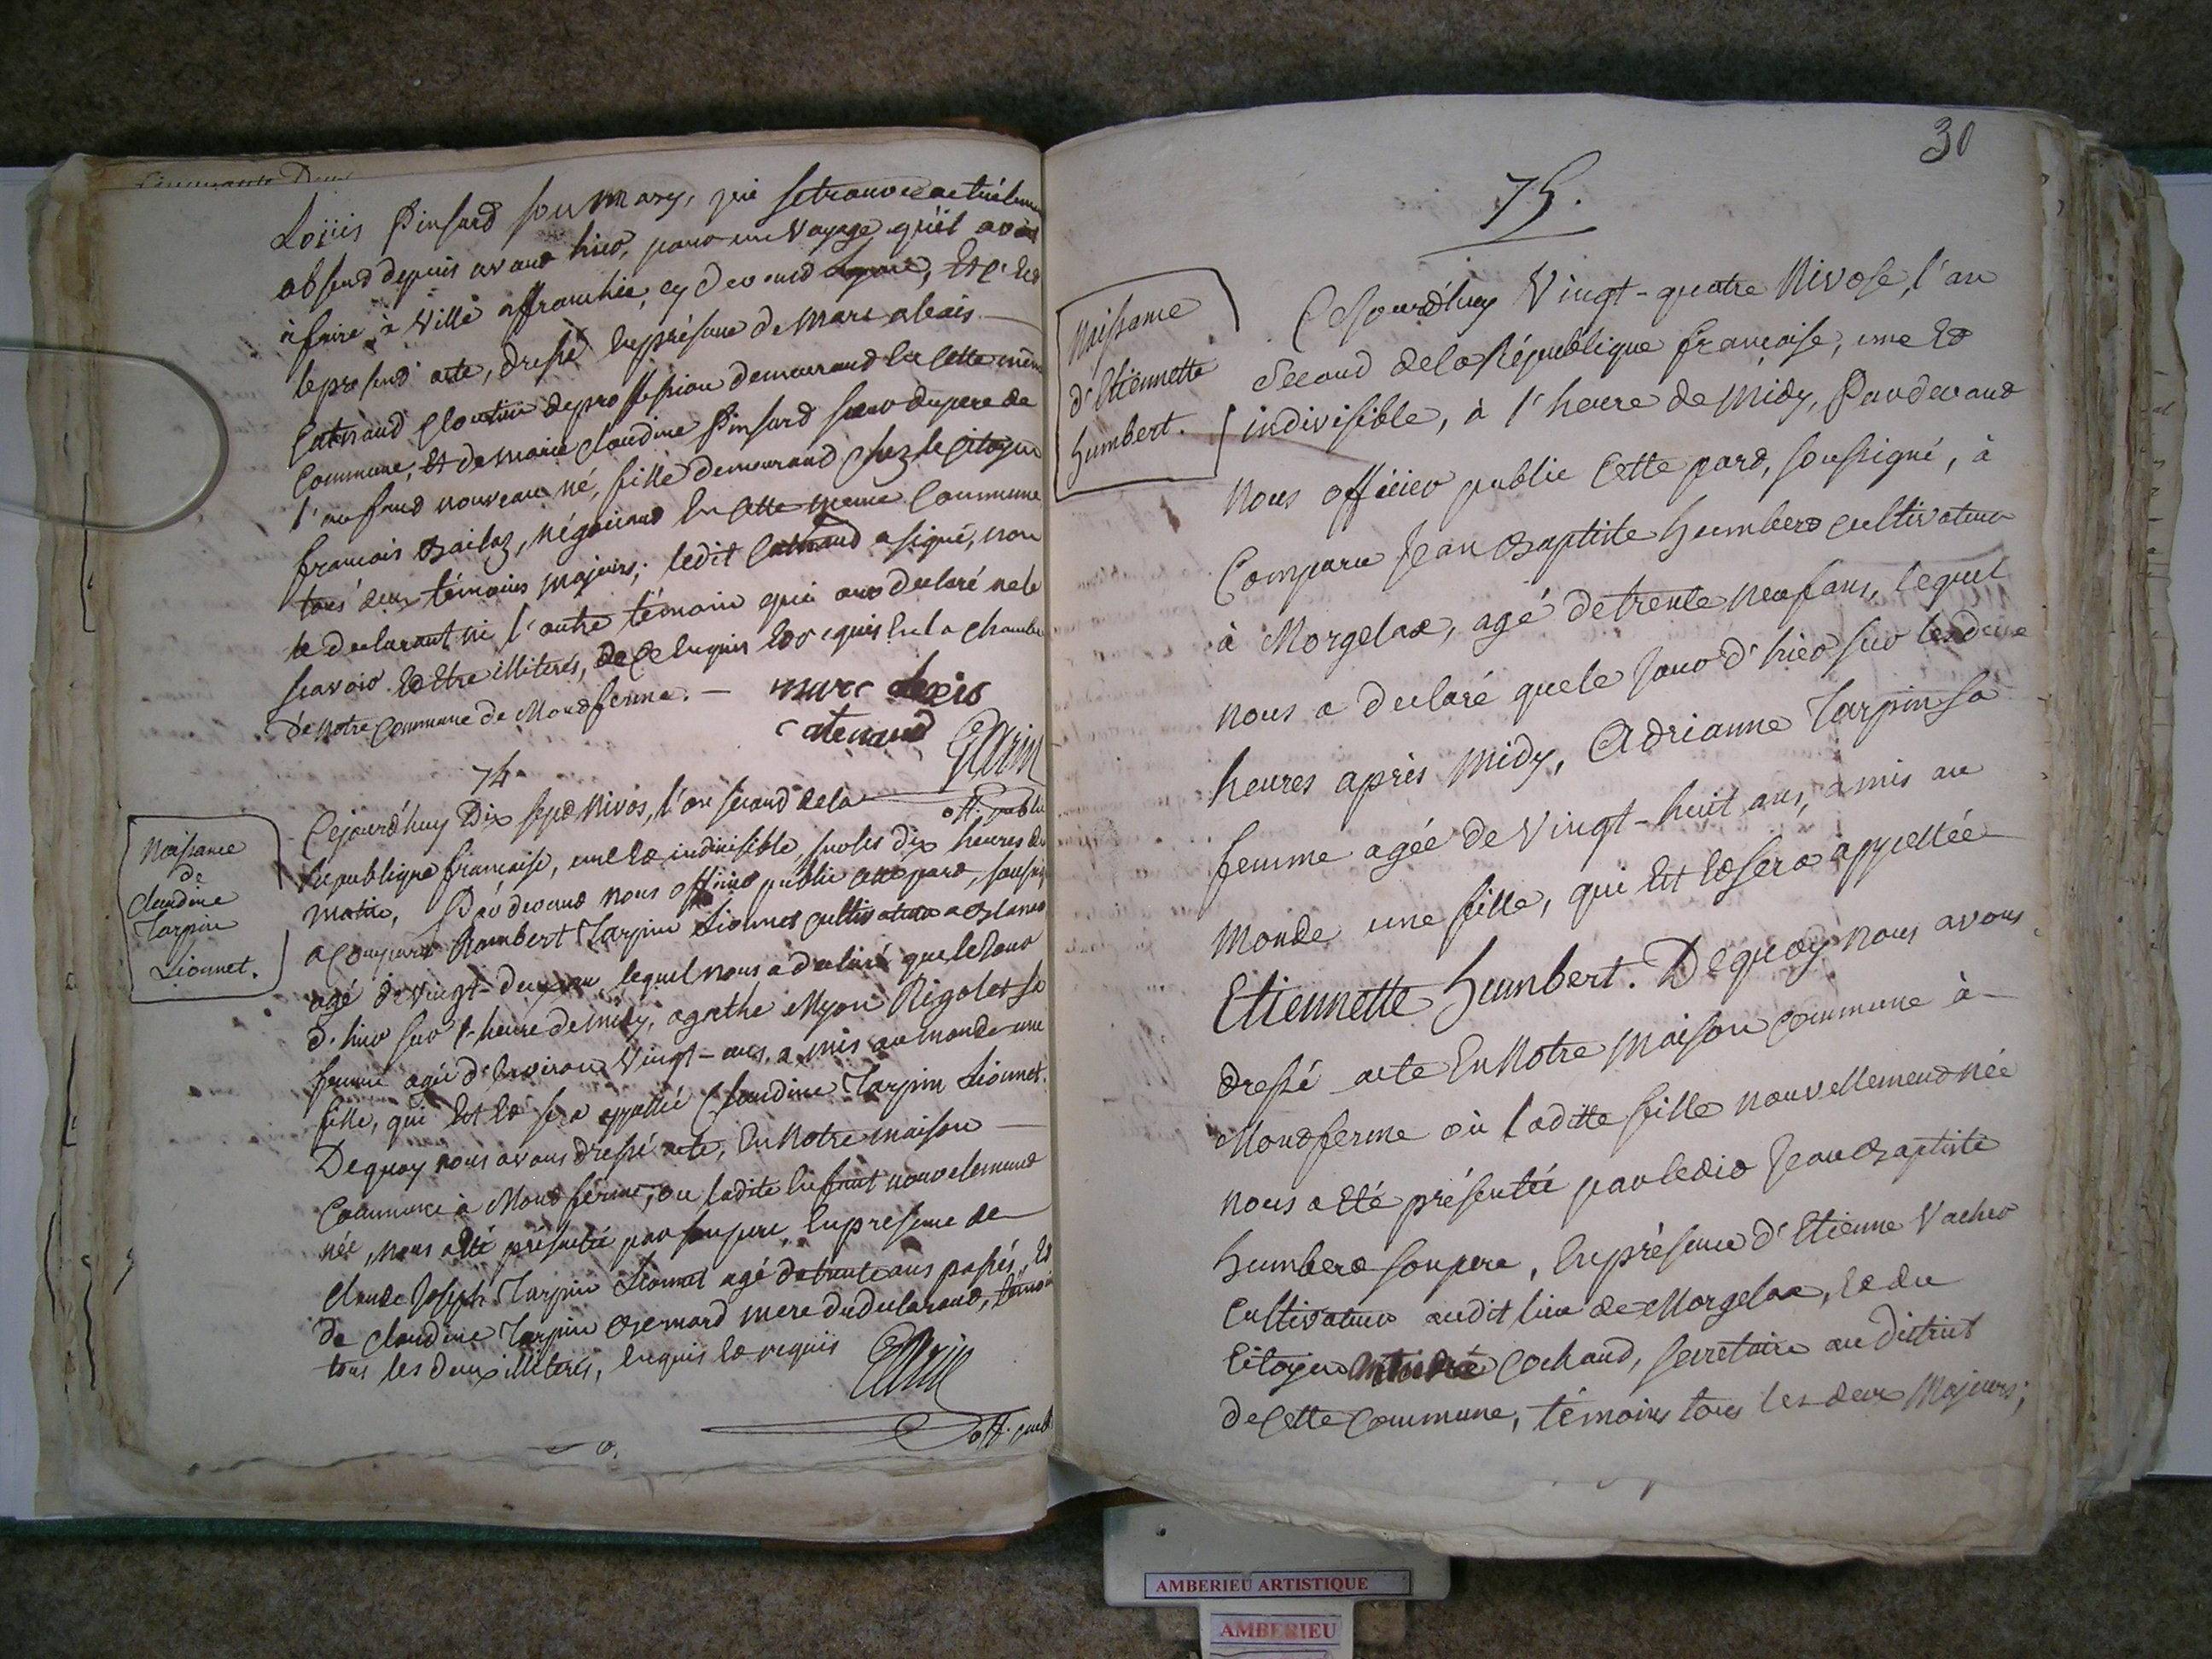 Loüis Pinsard son mary, qui se trouve actuelemen
absend depuis avand hier, pour un voyage qu'il avoit
à faire à Ville affranchie, cy devand Lyon, Et C. Est
le presend acte, dressé En présence de Marc alexis
Catinaud cloutier de profession demeurand En cette même
Commune, Et de marie claudine Pinsard seur du pere de
l'enfand nouveau né, fille demeurand chez le Citoyen
francois Bailaz, négociand En cette meme Commune
tous deux témoins majeurs; ledit Catinaud a signé, non
le declarant ni l'autre témoin qui ont declaré ne le
scavoir Et Etre illiterés, de ce Enquis Et requis En la chambre
de notre Commune de Mondferme. — marc alexis
catenaud
Garin
off. public
74
Naissance
de
claudine
Tarpin
Lionnet.
Cejourd'huy Dix sept Nivos, l'an second dela
République francaise, une Et indivisible, sur les dix heures du
matin, Par devand nous officier public cette pard, soussig
a Comparu Rambert Tarpin Lionnet cultivateur a
agé de vingt-deux ans lequel nous a declaré que le Jour
d'hier sur l'heure de midy, agathe Myon Rigolet sa
femme agée d'Environ Vingt-ans, a mis au monde une
fille, qui Est Et sera appellé Claudine Tarpin Lionnet.
De quoy nous avons dressé acte, En Notre maison
Commune à Mondferme, ou ladite Enfant nouvelemend
née, nous a Eté présentée par son pere, En presence de
Claude Joseph Tarpin Lionnet agé de trente ans passés, Et
de Claudine Tarpin Bernard mere du declarand, témoin
tous les deux illiterés, Enquis Et requis
Garin
off. publ
30
75.
Naissance
d'Etiennette
humbert.
Cejourd'huy Vingt-quatre Nivose, l'an
Second de la République francaise, une Et
indivisible, à l'heure de Midy, Pardevand
Nous officier public cette pard, soussigné, à
Comparu Jean Baptiste humberd cultivateur
à Morgelax, agé de trente neuf ans, lequel
nous a declaré que le Jour d'hier sur les deux
heures après midy, Adrianne Tarpin sa
femme agée de Vingt-huit ans, a mis au
monde une fille, qui Est Et sera appellée
Etiennette humbert. De quoy nous avons
dressé acte En Notre maison commune à
Mondferme où ladite fille nouvellemend née
nous a Eté présentée par ledid Jean Baptiste
humberd son pere, En présence d'Etienne Vacher
Cultivateur audit lieu de Morgelax, Et du
Citoyen Cochaud, secretaire au district
de Cette Commune, témoins tous les deux Majeurs;
AMBERIEU ARTISTIQUE
AMBERIEU